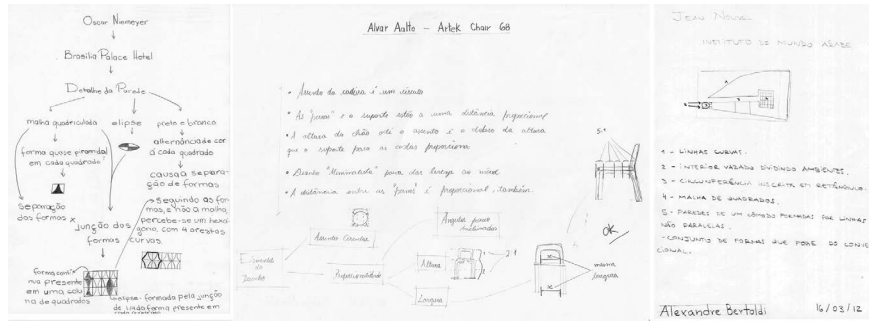 Oscar Niemeyer
Brasilia Palace Hotel
Detalhe da Parede
malha quadriculada
elipse
preto e branco
forma quase piramidal
em cada quadrado
alternância de cor
a cada quadrado
causa a separa-
ção de formas
separação
das formas x
junção das
formas curvas.
seguindo as for-
mas, e não a malha,
percebe-se um hexá-
gono, com 4 arestas
forma contí-
nua presente
em uma colu
na de quadrados
elipse - formada pela junção
de cada forma presente em
Alvar Aalto - Artek Chair 68
• Assento da cadeira é um círculo
• As "pernas" e o suporte estão a uma distância proporcional
• A altura do chão até o assento é o dobro da altura
que o suporte para as costas proporciona
• Desenho "Minimalista"
• A distância entre as "pernas" é proporcional, também.
Assento Circular
Proporcionalidade
Altura
Largura
2:1
mesma
largura
OK
Jean Nouvel
INSTITUTO DO MUNDO ÁRABE
1 - LINHAS CURVAS.
2 - INTERIOR VAZADO DIVIDINDO AMBIENTES.
3 - CIRCUNFERÊNCIA INSCRITA EM RETÂNGULO.
4 - MALHA DE QUADRADOS.
5 - PAREDES DE UM CÔMODO FORMADAS POR LINHAS
NÃO PARALELAS.
- CONJUNTO DE FORMAS QUE FOGE DO CONVEN
CIONAL.
Alexandre Bertoldi
16/03/12